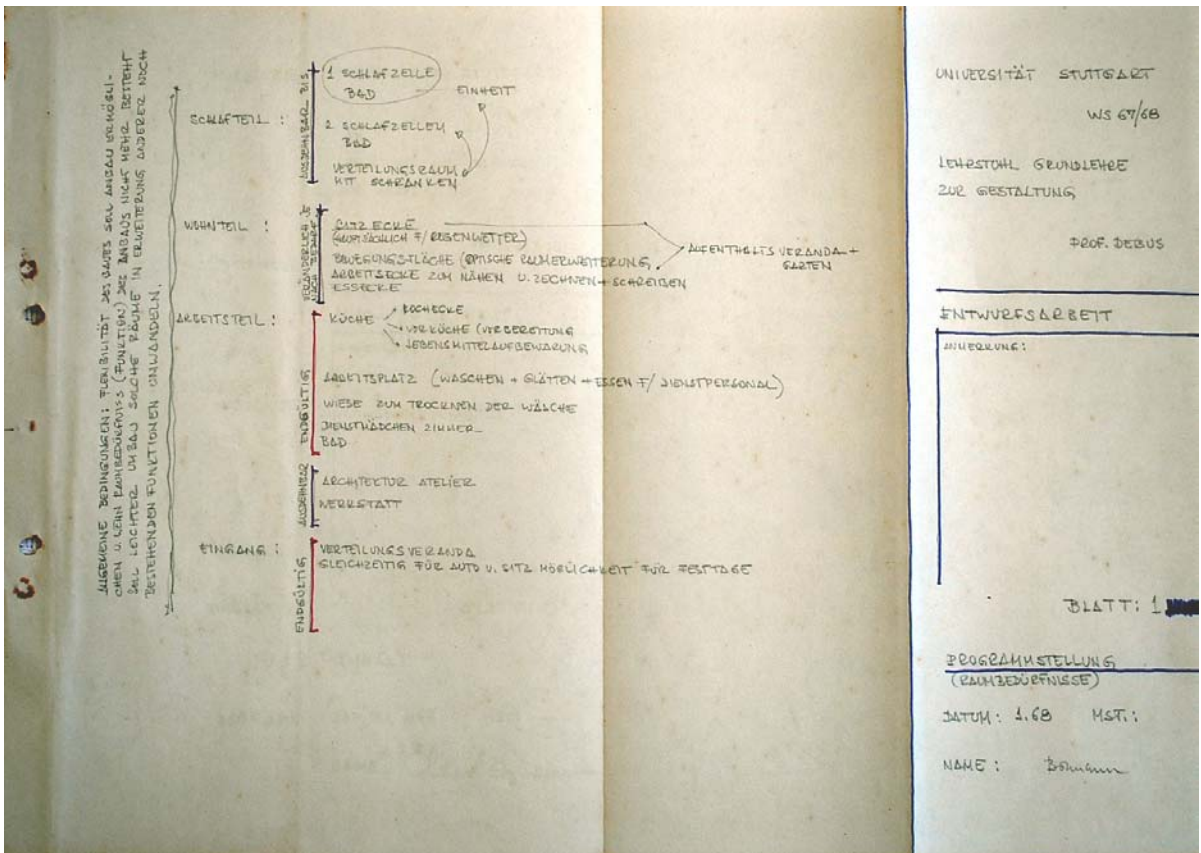 ALLGEMEINE BEDINGUNGEN: FLEXIBILITÄT DES BAUES SOLL ANBAU ERMÖGLI-
CHEN U. WENN RAUMBEDÜRFNISS (FUNKTION) DES ANBAUS NICHT MEHR BESTEHT
SOLL LEICHTER UMBAU SOLCHE RÄUME IN ERWEITERUNG ANDERER NOCH
BESTEHENDEN FUNKTIONEN UMWANDELN.
SCHLAFTEIL :
AUSDEHNBAR BIS
1 SCHLAFZELLE
BAD
EINHEIT
2 SCHLAFZELLEN
BAD
VERTEILUNGSRAUM
MIT SCHRÄNKEN
WOHNTEIL :
VERÄNDERLICH JE
NACH BEDARF
SITZ ECKE
(HAUPTSÄCHLICH F/ REGENWETTER)
BEWEGUNGSFLÄCHE (OPTISCHE RAUMERWEITERUNG
AUFENTHALTSVERANDA +
GARTEN
ARBEITSECKE ZUM NÄHEN U. ZECHNEN + SCHREIBEN
ESSECKE
ARBEITSTEIL :
ENDGÜLTIG
KÜCHE
KOCHECKE
VORKÜCHE (VORBEREITUNG
LEBENSMITTELAUFBEWARUNG
ARBEITSPLATZ (WASCHEN + GLÄTTEN + ESSEN F/ DIENSTPERSONAL)
WIESE ZUM TROCKNEN DER WÄSCHE
DIENSTMÄDCHEN ZIMMER_
BAD
AUSDEHNBAR
ARCHITEKTUR ATELIER
WERKSTATT
EINGANG :
ENDGÜLTIG
VERTEILUNGSVERANDA
GLEICHZEITIG FÜR AUTO U. SITZ MÖGLICHKEIT FÜR FESTTAGE
UNIVERSITÄT STUTTGART
WS 67/68
LEHRSTOHL GRUNDLEHRE
ZUR GESTALTUNG
PROF. DEBUS
ENTWURFSARBEIT
ANMERKUNG:
BLATT: 1
PROGRAMMSTELLUNG
(RAUMBEDÜRFNISSE)
DATUM: 1.68 MST.:
NAME :